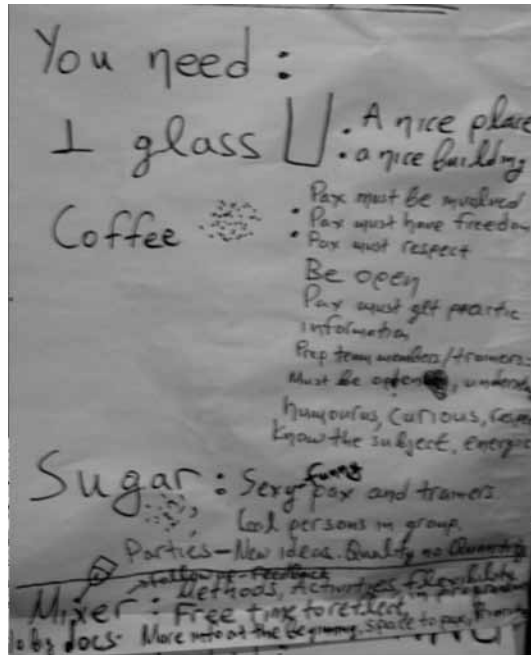 You need :
1 glass . A nice place
. a nice building
Pax must be involved
Coffee . Pax must have freedom
. Pax must respect
Be open
Pax must get practic
information
Prep team members/trainers
Must be open, unders
humourus, curious, respe
Know the subject, energic
Sugar : Sexy funny pax and trainers
Cool persons in group,
Parties - New ideas. Quality no Quantity
follow up - Feedback
Mixer : Methods, Activities, flexibility in program
Free time to reflect,
docs. More info at the beginning, space to pax,